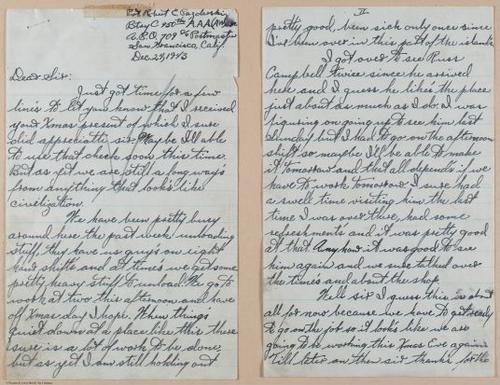 Pvt Robert C
Btry C 950th A.A.A.
A.P.O. 709 c/o Postmaster
San Francisco, Calif
Dec. 24, 1943
Dear Sir:
Just got time for a few
lines to let you know that I received
your Xmas present of which I sure
did appreciate sir. Maybe I'll be able
to use that check soon this time.
But as yet we are still a long ways
from anything that looks like
civelization.
We have been pretty busy
around here the past week, unloading
stuff, they have us guys on eight
hour shifts and at times we get some
pretty heavy stuff to unload. We go to
work at two this afternoon and have
off Xmas day I hope. When things
quiet down at a place like this there
sure is a lot of work to be done,
but as yet I am still holding out
II
pretty good, been sick only once since
I've been over in this part of the islands
I got over to see Russ
Campbell twice since he arrived
here and I guess he likes the place
just about as much as I do. I was
figuring on going up to see him last
Sunday but I had to go on the afternoon
shift so maybe I'll be able to make
it tomorrow and that all depends if we
have to work tomorrow. I sure had
a swell time visiting him the last
time I was over there, had some
refreshments and it was pretty good
at that. Any how it was good to see
him again and we once talked over
the times and about the shop.
Well sir I guess this is about
all for now because we have to get ready
to go on the job so it looks like we are
going to be working this Xmas Eve again
Till later on then sir thanks for the